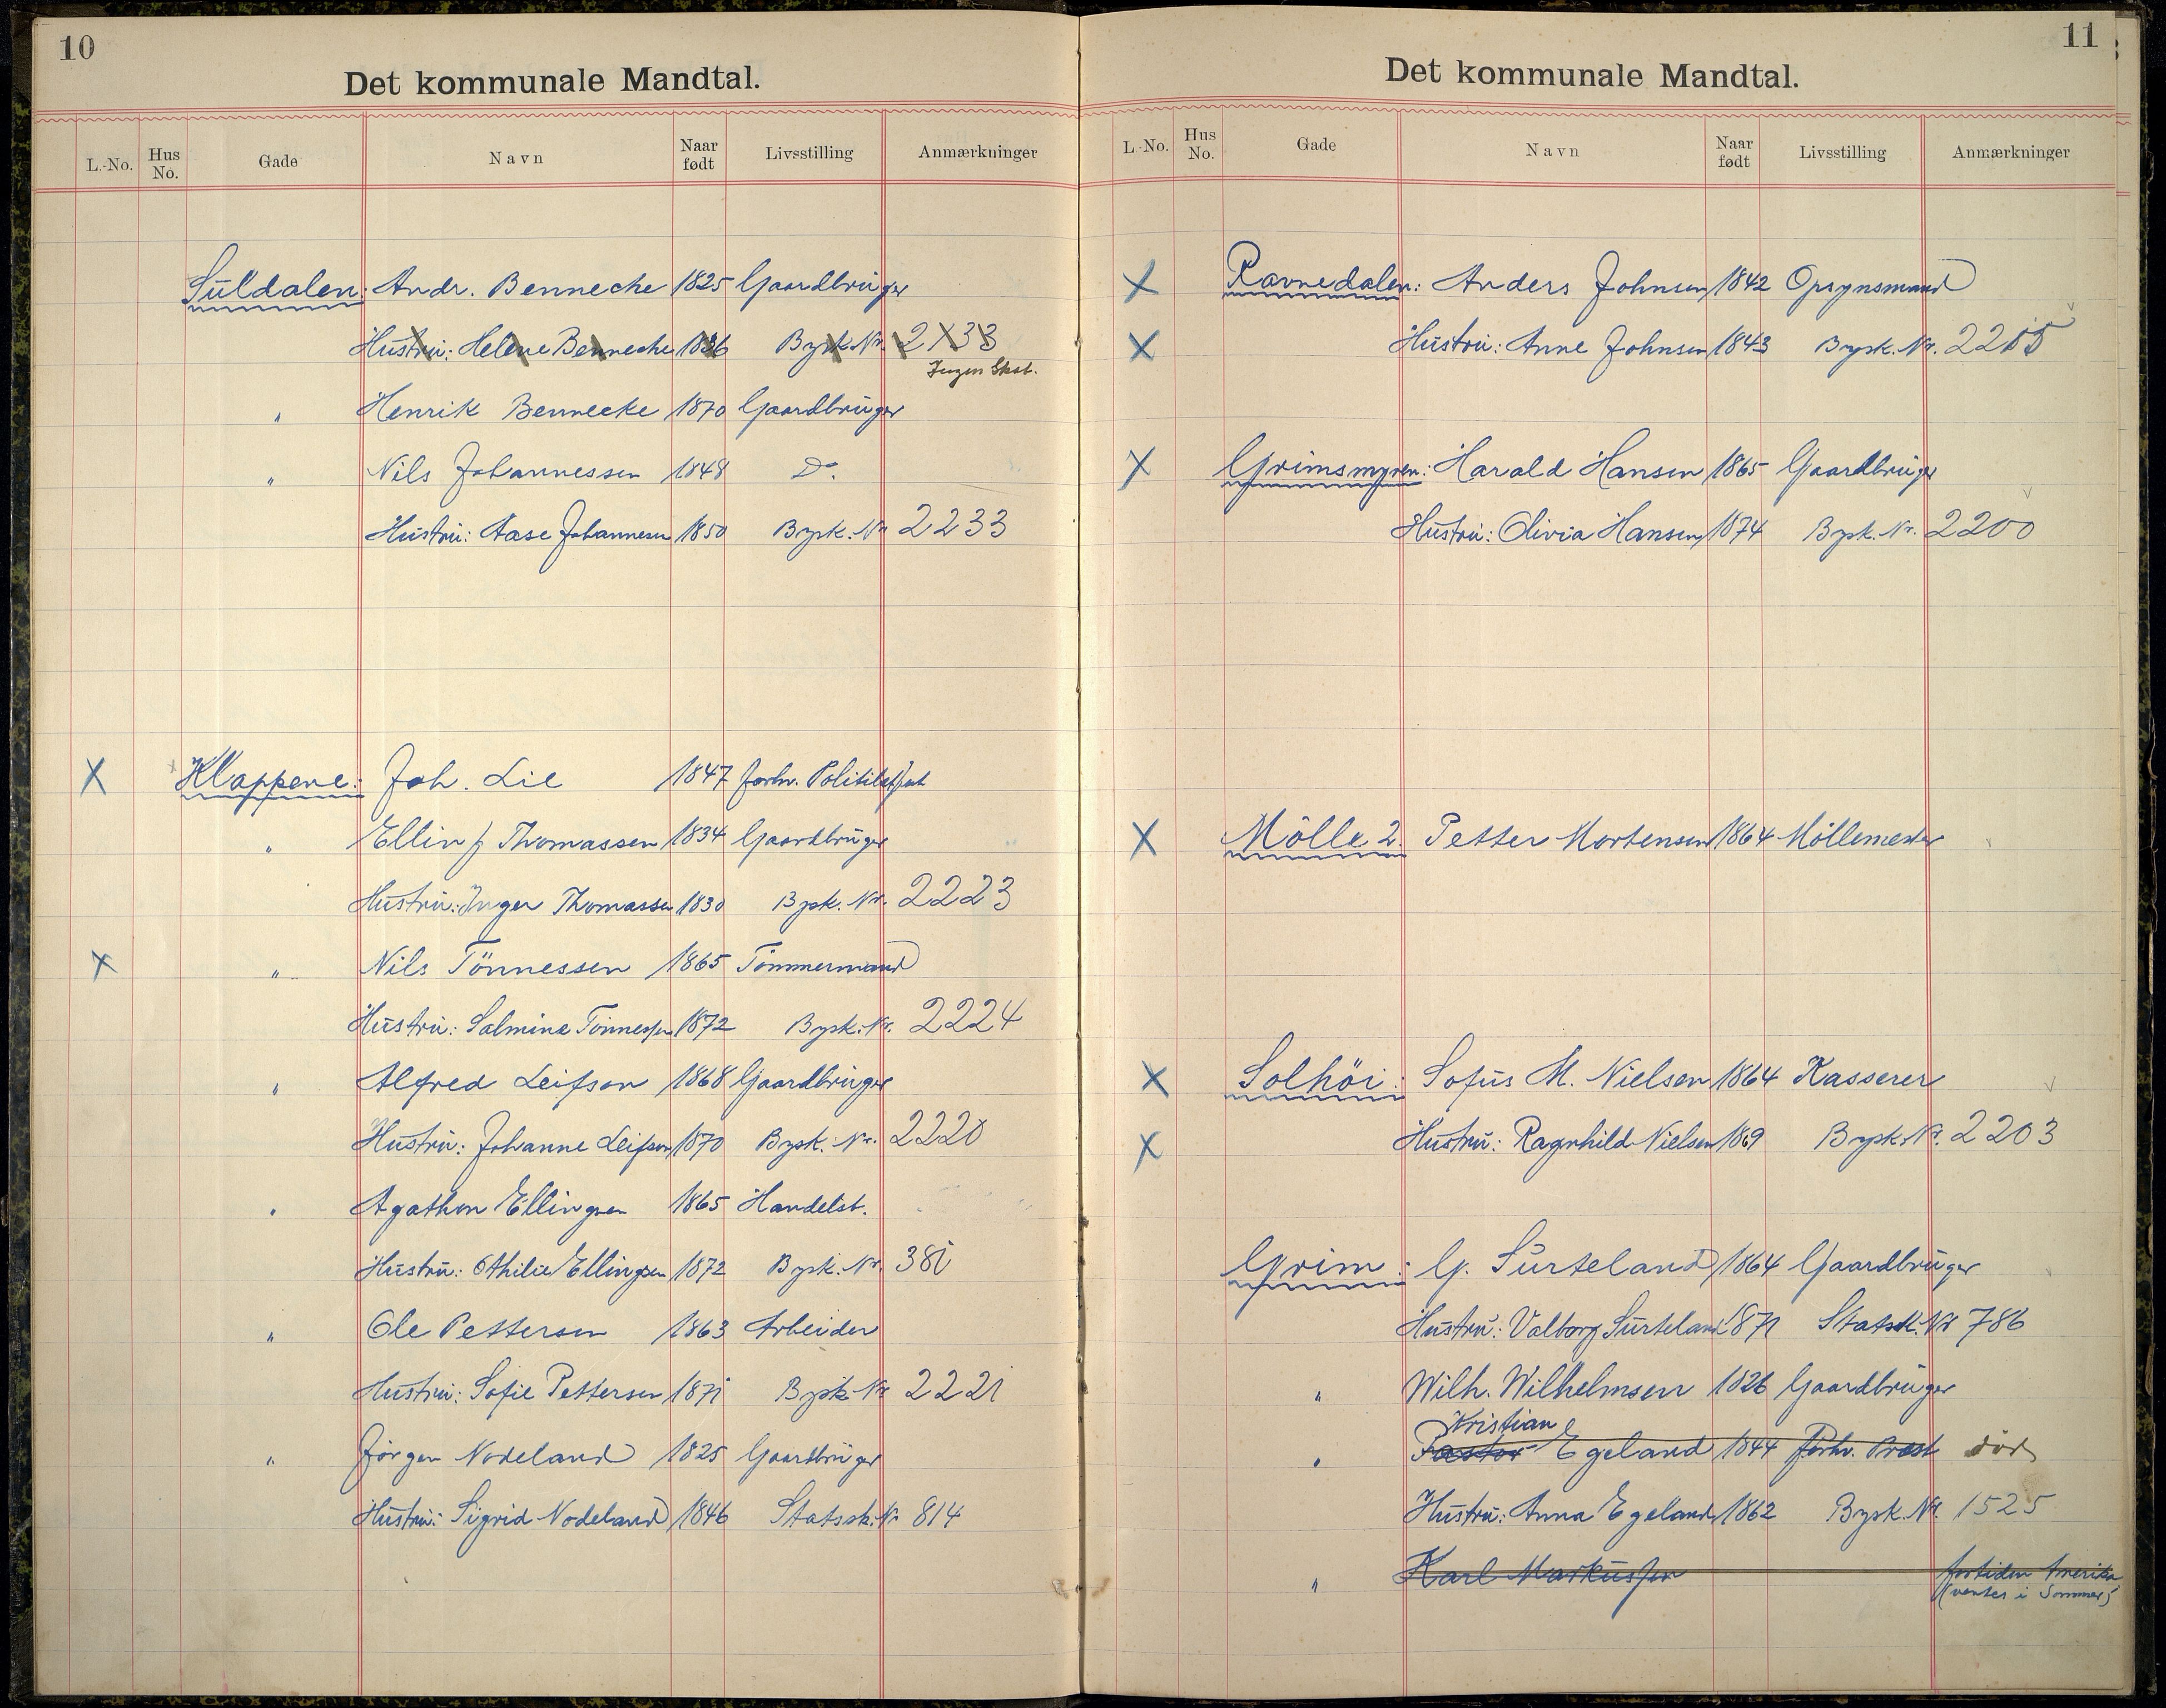 10
Det kommunale Mandtal.
L.-No. Hus No. Gade Navn Naar født Livsstilling Anmærkninger
Suldalen: Andr. Benneche 1825 Gaardbruger
Hustru: Helene Benneche 1836 Bysk. Nr. 2133
Ingen Skat.
" Henrik Bennecke 1870 Gaardbruger
" Nils Johannessen 1848 Do.
Hustru: Aase Johannesen 1850 Bysk. Nr 2233
X Klappene: Joh. Lie 1847 forhv. Politibetjent
" Elling Thomassen 1834 Gaardbruger
Hustru: Inger Thomassen 1830 Bysk. Nr. 2223
X " Nils Tönnessen 1865 Tömmermand
Hustru: Salmine Tönnessen 1872 Bysk. Nr. 2224
" Alfred Leifson 1868 Gaardbruger
Hustru: Johanne Leifson 1870 Bysk. Nr. 2220
" Agathon Ellingsen 1865 Handelsb.
Hustru: Othilie Ellingsen 1872 Bysk. Nr. 381
" Ole Pettersen 1863 Arbeider
Hustru: Sofie Pettersen 1871 Bysk Nr 2221
" Jörgen Nodeland 1825 Gaardbruger
Hustru: Sigrid Nodeland 1846 Statssk. Nr 814
11
Det kommunale Mandtal.
L-No. Hus No. Gade Navn Naar født Livsstilling Anmærkninger
X Ravnedalen: Anders Johnsen 1842 Opsynsmand
X Hustru: Anne Johnsen 1843 Bysk. Nr. 2215
X Grimsmyren: Harald Hansen 1865 Gaardbruger
Hustru: Olivia Hansen 1874 Bysk. Nr. 2200
X Mölle 2. Petter Mortensen 1864 Möllemester
X Solhöi: Sofus M. Nielsen 1864 Kasserer
X Hustru: Ragnhild Nielsen 1869 Bysk. Nr. 2203
Grim: G. Surteland 1864 Gaardbruger
Hustru: Valborg Surteland 1871 Statssk. Nr 786
" Wilh. Wilhelmsen 1826 Gaardbruger
Kristian
" Pastor Egeland 1844 Forhv. Prest död
Hustru: Anna Egeland 1862 Bysk. Nr. 1525
" Karl Markussen fortiden Amerika
(ventes i Sommer)